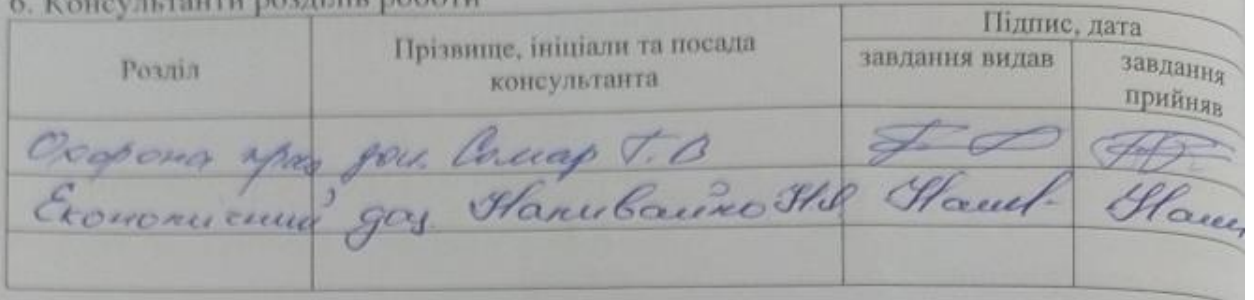 6. Консультанти розділів роботи
Розділ
Прізвище, ініціали та посада
консультанта
Підпис, дата
завдання видав
завдання
прийняв
Охорона праці доц. Сомар Г. В
Економічний доц. Наливайко Н.Я